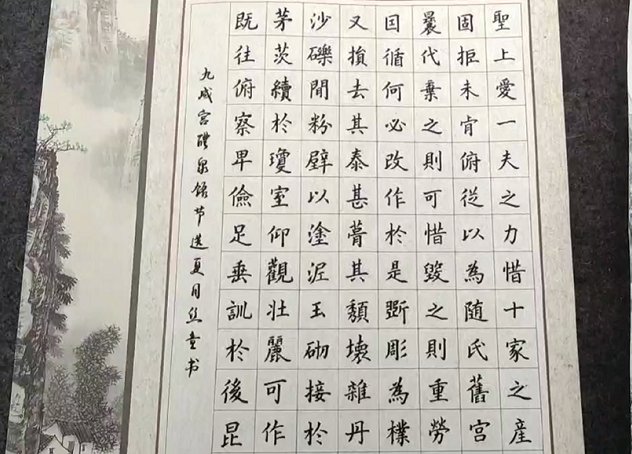 聖上愛一夫之力惜十家之産
固拒未肯俯從以為随氏舊宮
曩代棄之則可惜毀之則重勞
因循何必改作於是斲彫為樸
又損去其泰甚葺其頹壞雜丹
沙礫間粉壁以塗泥玉砌接於
茅茨續於瓊室仰觀壯麗可作
既往俯察卑儉足垂訓於後昆
九成宮醴泉銘节选夏月丝童书